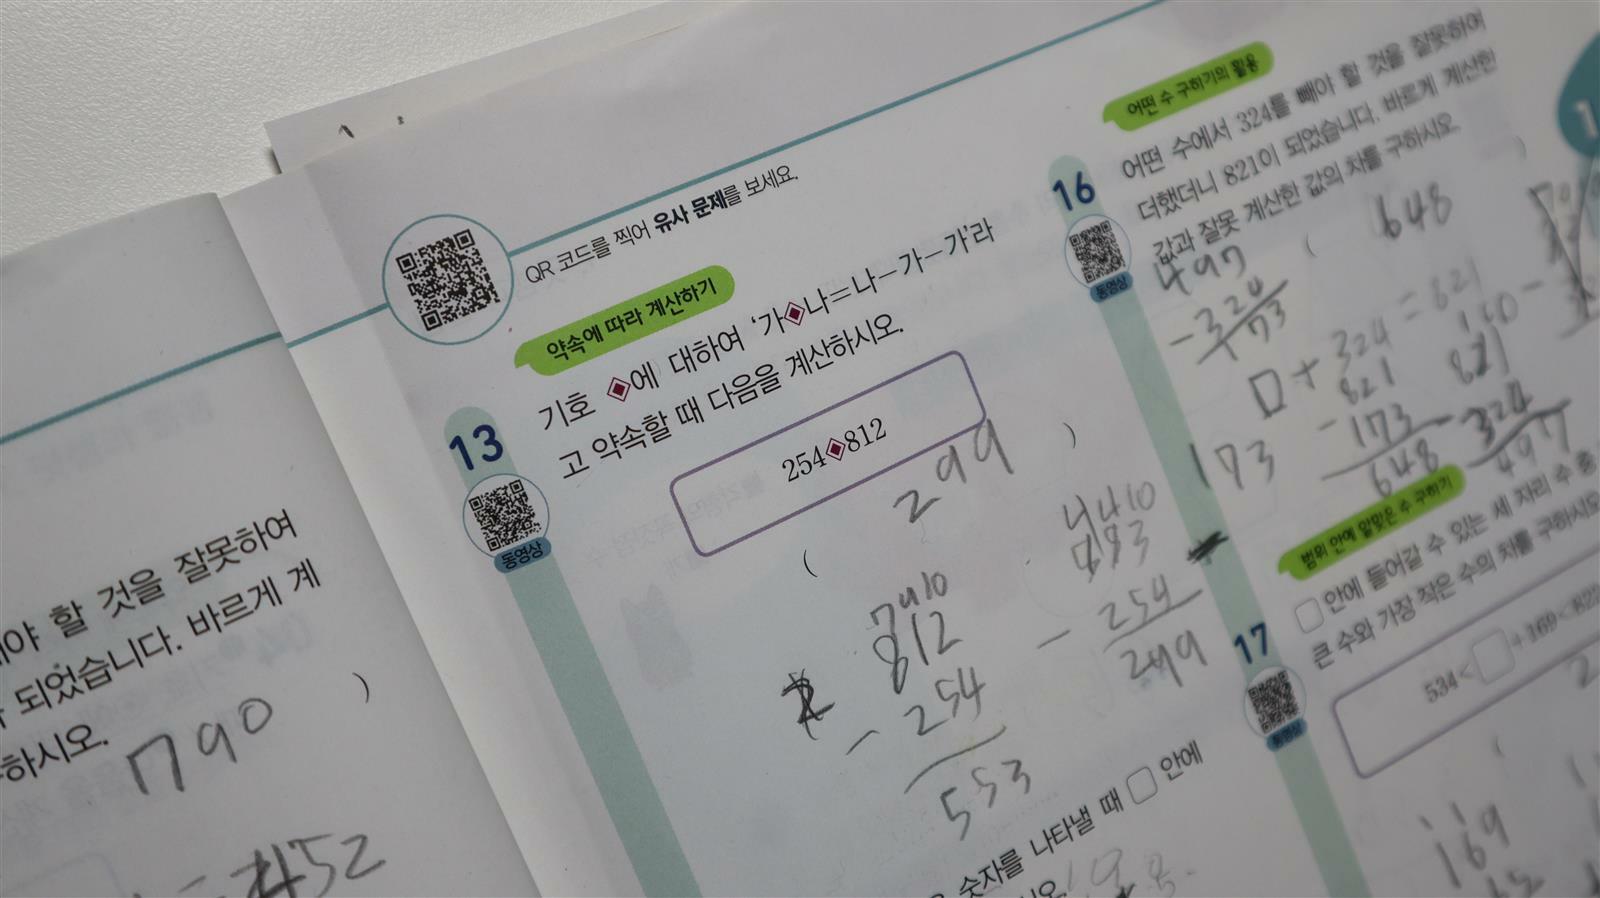 QR 코드를 찍어 유사 문제를 보세요.
해야 할 것을 잘못하여
되었습니다. 바르게 계
하시오.
790 )
452
약속에 따라 계산하기
13
동영상
기호 ◈에 대하여 '가◈나=나-가-가'라
고 약속할 때 다음을 계산하시오.
254◈812
( 299 )
7 10
812
- 254
553
4 10
- 254
숫자를 나타낼 때 □ 안에
어떤 수 구하기의 활용
16
동영상
어떤 수에서 324를 빼야 할 것을 잘못하여
더했더니 821이 되었습니다. 바르게 계산한
값과 잘못 계산한 값의 차를 구하시오.
( 648 )
497
□+324=821
173
821
- 173
648
821
- 324
497
범위 안에 알맞은 수 구하기
17
동영상
□ 안에 들어갈 수 있는 세 자리 수 중
큰 수와 가장 작은 수의 차를 구하시오
534<□+169<
169
1